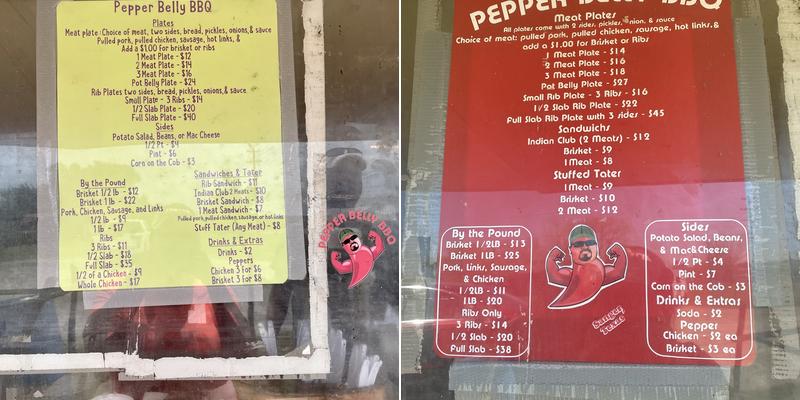 Pepper Belly BBQ
Plates
Meat plate: Choice of meat, two sides, bread, pickles, onions, & sauce
Pulled pork, pulled chicken, sausage, hot links, &
Add a $1.00 for brisket or ribs
1 Meat Plate - $12
2 Meat Plate - $14
3 Meat Plate - $16
Pot Belly Plate - $24
Rib Plates two sides, bread, pickles, onions, & sauce
Small Plate - 3 Ribs - $14
1/2 Slab Plate - $20
Full Slab Plate - $40
Sides
Potato Salad, Beans, or Mac Cheese
1/2 Pt - $4
Pint - $6
Corn on the Cob - $3
By the Pound
Brisket 1/2 lb - $12
Brisket 1 lb - $22
Pork, Chicken, Sausage, and Links
1/2 lb - $9
1 lb - $17
Ribs
3 Ribs - $11
1/2 Slab - $18
Full Slab - $35
1/2 of a Chicken - $9
Whole Chicken - $17
Sandwiches & Tater
Rib Sandwich - $11
Indian Club 2 Meats - $10
Brisket Sandwich - $8
1 Meat Sandwich - $7
Pulled pork, pulled chicken, sausage, or hot links
Stuff Tater (Any Meat) - $8
Drinks & Extras
Drinks - $2
Peppers
Chicken 3 For $6
Brisket 3 For $8
PEPPER BELLY BBQ
PEPPER BELLY BBQ
Meat Plates
All plates come with 2 sides, pickles, onion, & sauce
Choice of meat: pulled pork, pulled chicken, sausage, hot links, &
add a $1.00 for Brisket or Ribs
1 Meat Plate - $14
2 Meat Plate - $16
3 Meat Plate - $18
Pot Belly Plate - $27
Small Rib Plate - 3 Ribs - $16
1/2 Slab Rib Plate - $22
Full Slab Rib Plate with 3 sides - $45
Sandwichs
Indian Club (2 Meats) - $12
Brisket - $9
1 Meat - $8
Stuffed Tater
1 Meat - $9
Brisket - $10
2 Meat - $12
By the Pound
Brisket 1/2LB - $13
Brisket 1LB - $25
Pork, Links, Sausage,
& Chicken
1/2LB - $11
1LB - $20
Ribs Only
3 Ribs - $14
1/2 Slab - $20
Full Slab - $38
Texas
Sides
Potato Salad, Beans,
& Mac&Cheese
1/2 Pt - $4
Pint - $7
Corn on the Cob - $3
Drinks & Extras
Soda - $2
Pepper
Chicken - $2 ea
Brisket - $3 ea